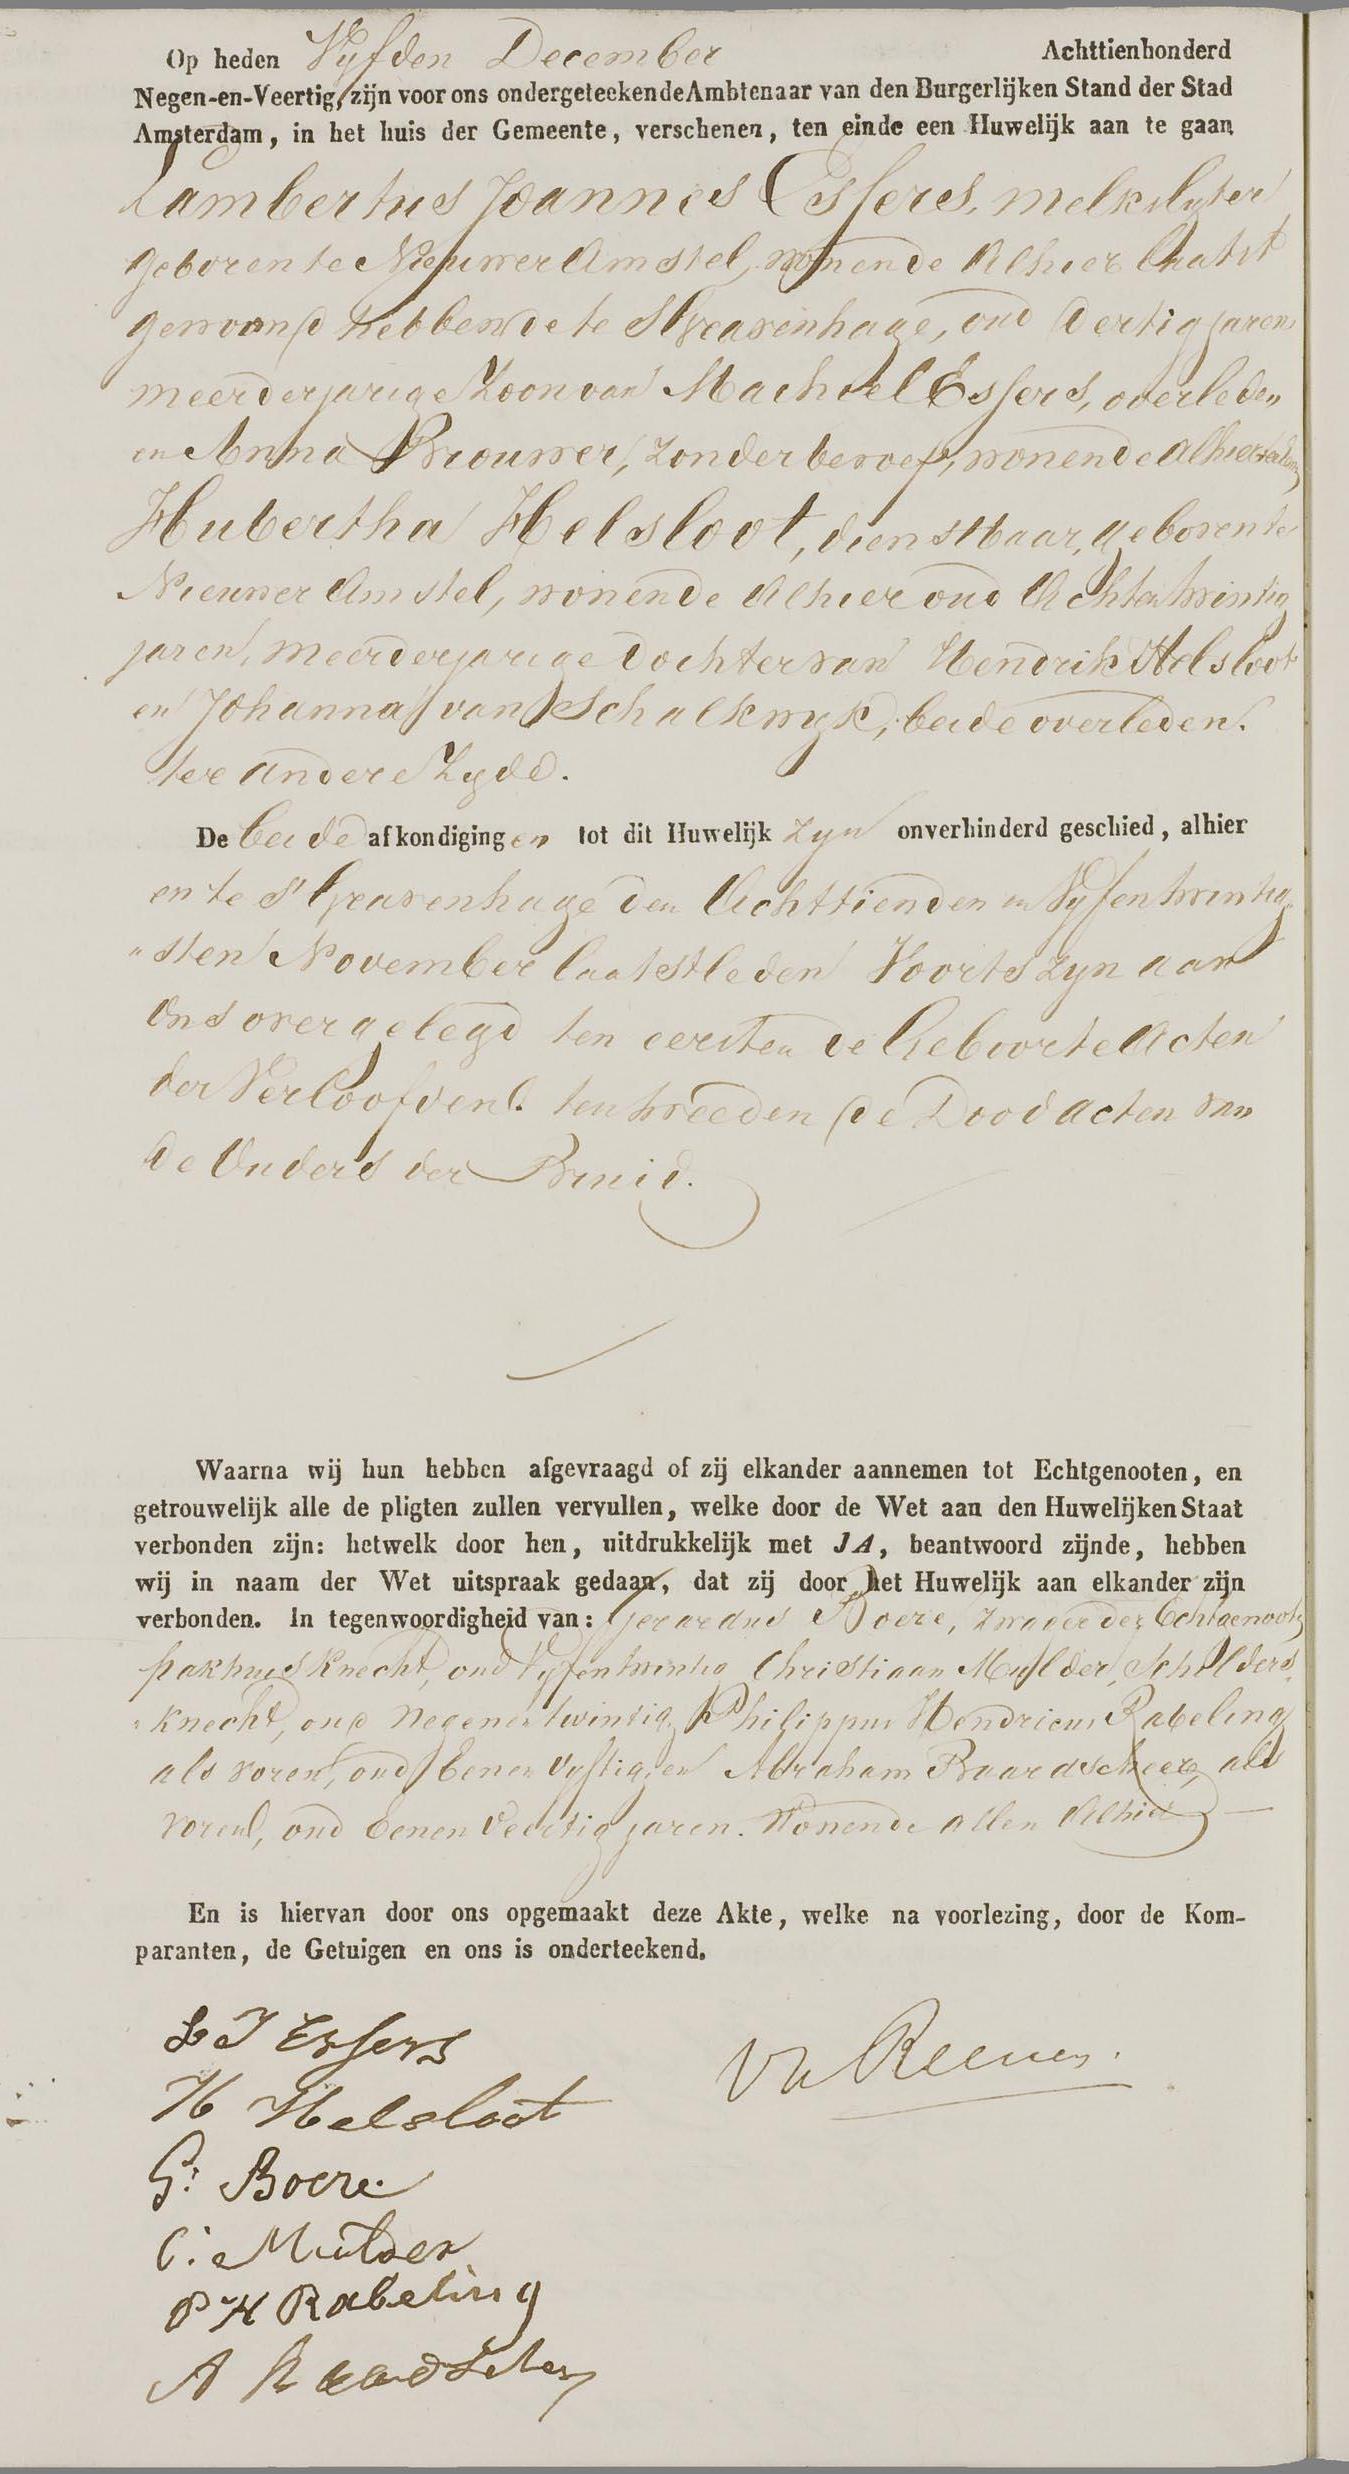 Op heden Vyfden December Achttienhonderd
Negen-en-Veertig, zijn voor ons ondergeteekende Ambtenaar van den Burgerlijken Stand der Stad
Amsterdam, in het huis der Gemeente, verschenen, ten einde een Huwelijk aan te gaan
Lambertus Joannes Essers, melkslyter
geboren te Nieuwer Amstel, wonende Alhier laatst
gewoond hebbende te S'Gravenhage, oud Dertig jaren
meerderjarige Zoon van Machiel Essers, overleden
en Anna Brouwer, Zonder beroep, wonende Alhier
Hubertha Helsloot, dienstbaar, geboren te
Nieuwer Amstel, wonende Alhier oud Achtentwintig
jaren, meerderjarige Dochter van Hendrik Helsloot
en Johanna van Schalkwyk, beide overleden.
ter andere Zyde.
De beide afkondigingen tot dit Huwelijk Zyn onverhinderd geschied, alhier
en te S'Gravenhage den Achttienden en Vyfentwintig
"sten November laatstleden Voorts zyn aan
Ons overgelegd ten eersten de Geboorte Acten
der Verloofden. ten tweeden de Dood Acten van
de Ouders der Bruid.
Waarna wij hun hebben afgevraagd of zij elkander aannemen tot Echtgenooten, en
getrouwelijk alle de pligten zullen vervullen, welke door de Wet aan den Huwelijken Staat
verbonden zijn: hetwelk door hen, uitdrukkelijk met JA, beantwoord zijnde, hebben
wij in naam der Wet uitspraak gedaan, dat zij door het Huwelijk aan elkander zijn
verbonden. In tegenwoordigheid van: Gerardus Boere, Zwager der Echtgenoote
pakhuisknecht, oud Vyfentwintig Christiaan Mulder, Schilders
"knecht, oud Negenentwintig, Philippus Hendricus Rabeling
als voren, oud Eenen Vyftig, en Abraham Baardscheer, als
voren, oud Eenen Veertig jaren. Wonende allen Alhier
En is hiervan door ons opgemaakt deze Akte, welke na voorlezing, door de Kom-
paranten, de Getuigen en ons is onderteekend.
L J Essers
H Helsloot
G: Boere
C: Mulder
P H Rabeling